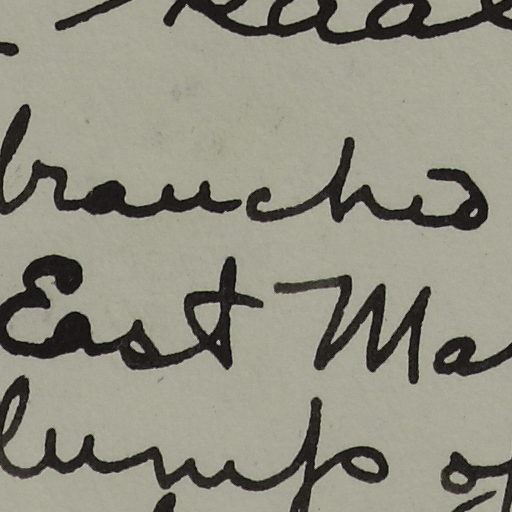 branched
East Ma
lumps of